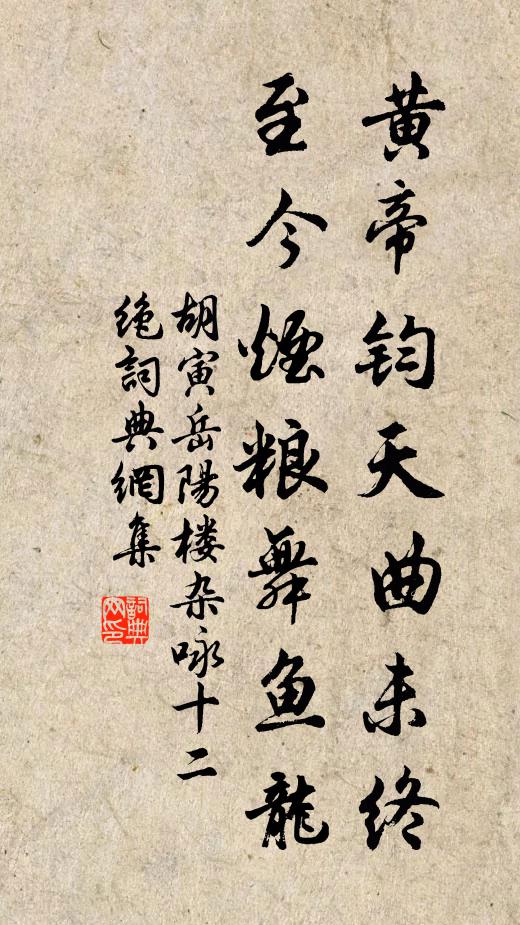 黄帝钧天曲未终
至今烟粮舞鱼龍
胡寅岳陽楼杂咏十二
绝詞典網集
詞典网印